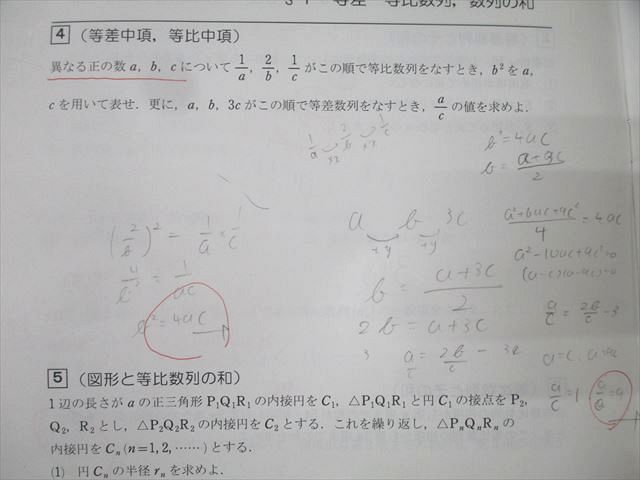 3-1 等差・等比数列，数列の和
4 (等差中項，等比中項)
異なる正の数 a, b, c について 1/a, 2/b, 1/c がこの順で等比数列をなすとき，b² を a,
c を用いて表せ．更に，a, b, 3c がこの順で等差数列をなすとき，a/c の値を求めよ．
1/a 2/b 1/c
b²=4ac
b=(a+3c)/2
(2/b)² = 1/a × 1/c
4/b² = 1/ac
b²=4ac
a b 3c
+y +y
b = (a+3c)/2
2b = a+3c
a/c = 2b/c - 3
(a²+6ac+9c²)/4 = 4ac
a²-10ac+9c²=0
(a-c)(a-9c)=0
a/c = 2b/c -3
a=c, a=9c
a/c = 1
5 (図形と等比数列の和)
1辺の長さが a の正三角形 P₁Q₁R₁ の内接円を C₁，△P₁Q₁R₁ と円 C₁ の接点を P₂,
Q₂, R₂ とし，△P₂Q₂R₂ の内接円を C₂ とする．これを繰り返し，△PₙQₙRₙ の
内接円を Cₙ (n=1, 2, ……) とする．
(1) 円 Cₙ の半径 rₙ を求めよ．